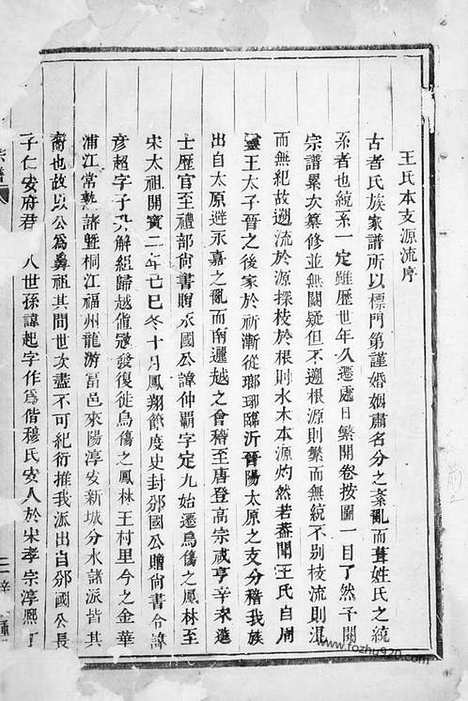 王氏本支源流序
古者氏族家譜所以標門第謹婚姻肅名分之紊亂而葺姓氏之統
系者也統系一定雖歷世年久遷處日繁開卷按圖一目了然予開
宗譜累次纂修並無闕疑但不遡根源則繁而無統不別枝流則混
而無紀故遡流於源探枝於根則水木本源灼然若蓋聞王氏自周
靈王太子晉之後家於祈漸從瑯琊臨沂晉陽太原之支分稽我族
出自太原避永嘉之亂而南遷越之會稽至唐登高宗咸亨辛未進
士歷官至禮部尙書贈永國公諱仲覇字定九始遷烏傷之鳳林至
宋太祖開寶二年己巳冬十月鳳翔節度史封邠國公贈尙書令諱
彦超字子九解組歸越値寇發復徙烏傷之鳳林王村里今之金華
浦江常熟諸曁桐江福州龍游富邑來陽淳安新城分水諸派皆其
裔也故以公爲鼻祖其間世次盡不可紀衍推我派出自邠國公長
子仁安府君 八世孫諱起字作爲偕穆氏安人於宋孝宗淳熙丁
www.fozhu920.com